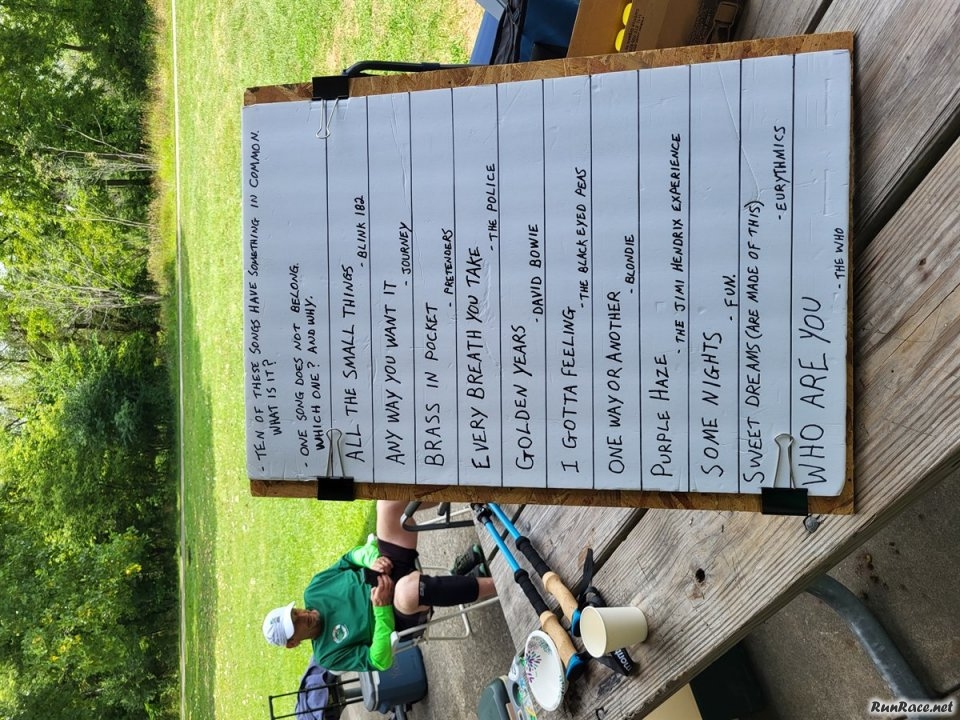 - TEN OF THESE SONGS HAVE SOMETHING IN COMMON.
WHAT IS IT?
- ONE SONG DOES NOT BELONG.
WHICH ONE? AND WHY.
ALL THE SMALL THINGS
- BLINK 182
ANY WAY YOU WANT IT
- JOURNEY
BRASS IN POCKET
- PRETENDERS
EVERY BREATH YOU TAKE
- THE POLICE
GOLDEN YEARS
- DAVID BOWIE
I GOTTA FEELING
- THE BLACK EYED PEAS
ONE WAY OR ANOTHER
- BLONDIE
PURPLE HAZE
- THE JIMI HENDRIX EXPERIENCE
SOME NIGHTS
- FUN.
SWEET DREAMS (ARE MADE OF THIS)
- EURYTHMICS
WHO ARE YOU
- THE WHO
RunRace.net